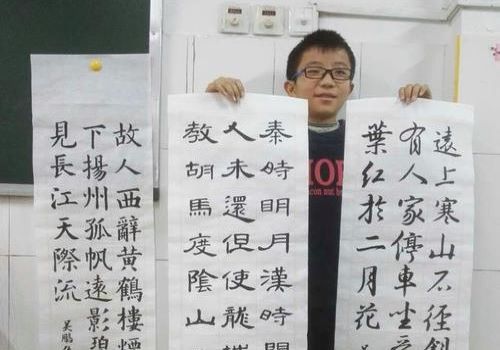 遠上寒山石徑斜
有人家停車坐愛
葉紅於二月花
秦時明月漢時關
人未還但使龍
教胡馬度陰山
故人西辭黄鶴樓煙
下揚州孤帆遠影碧
見長江天際流